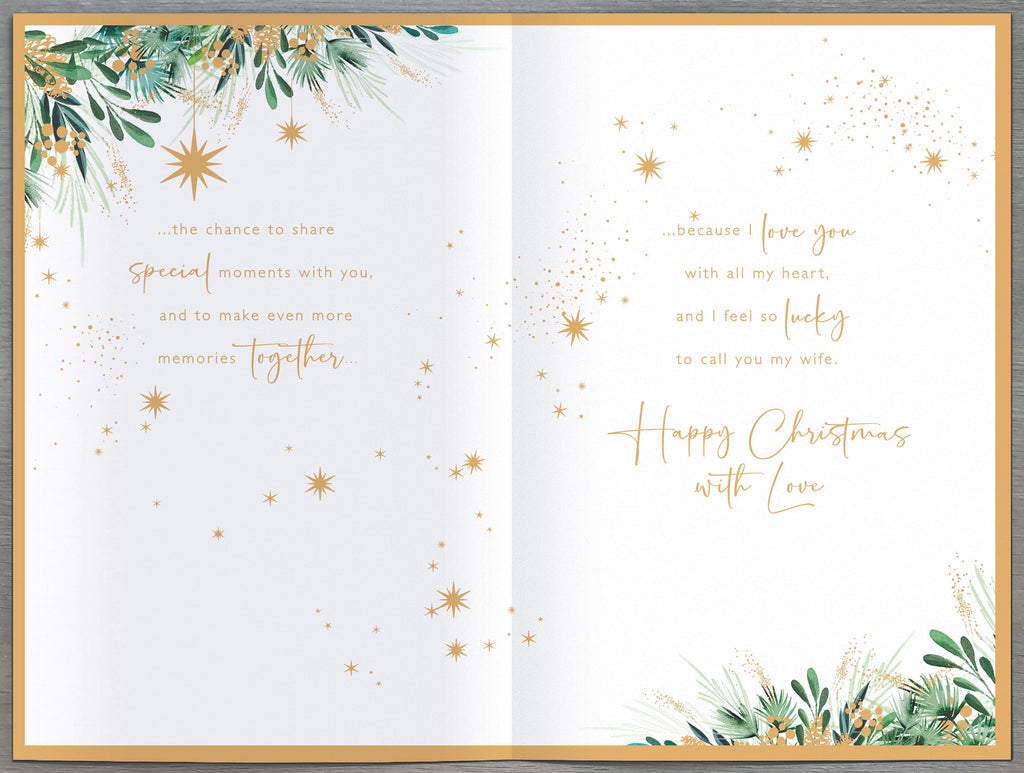 ...the chance to share
special moments with you,
and to make even more
memories together...
...because I love you
with all my heart,
and I feel so lucky
to call you my wife.
Happy Christmas
with Love